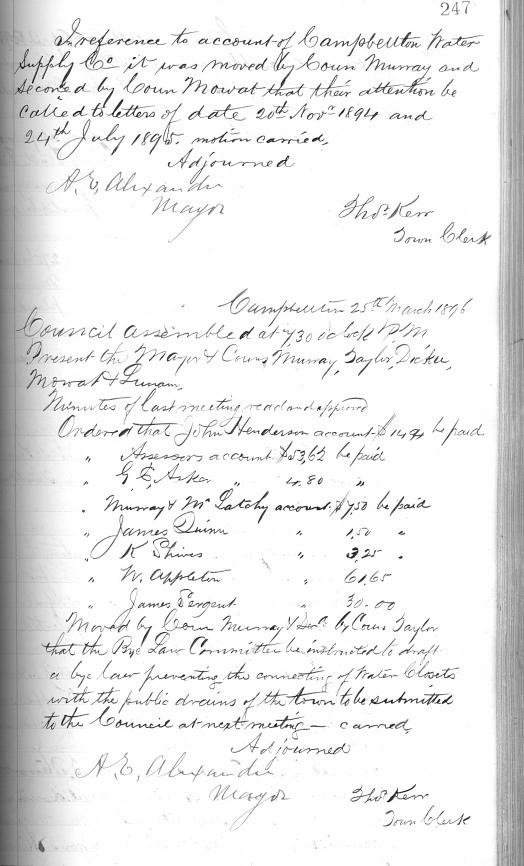 247
In reference to account of Campbellton Water
Supply Co it was moved by Coun Murray and
Seconed by Coun Mowat that their attention be
called to letters of date 20th Novr 1894 and
24th July 1895. motion carried,
Adjourned
A. E. Alexander
Mayor
Thos Kerr
Town Clerk
Campbellton 25th March 1896
Council assembled at 7,30 oclock P.M
Present the Mayor & Couns Murray, Taylor, Dicker,
Mowat & Lunam,
Minutes of last meeting read and approved
Ordered that John Henderson account $14.94 be paid
" Assessors account $53,62 be paid
" G E, Asker " 4.80 "
" Murray & Mc Latchy account $7,50 be paid
" James Quinn " 1,50 "
" K Shives " 3,25 "
" W. Appleton " 61,65
" James Sergent 30.00
Moved by Coun Murray & Secd by Coun Taylor
that the Bye Law Committee be instructed to draft
a bye law preventing the connecting of Water Closets
with the public drains of the town to be submitted
to the Council at next meeting — carried,
Adjourned
A, E, Alexander
Mayor
Thos Kerr
Town Clerk